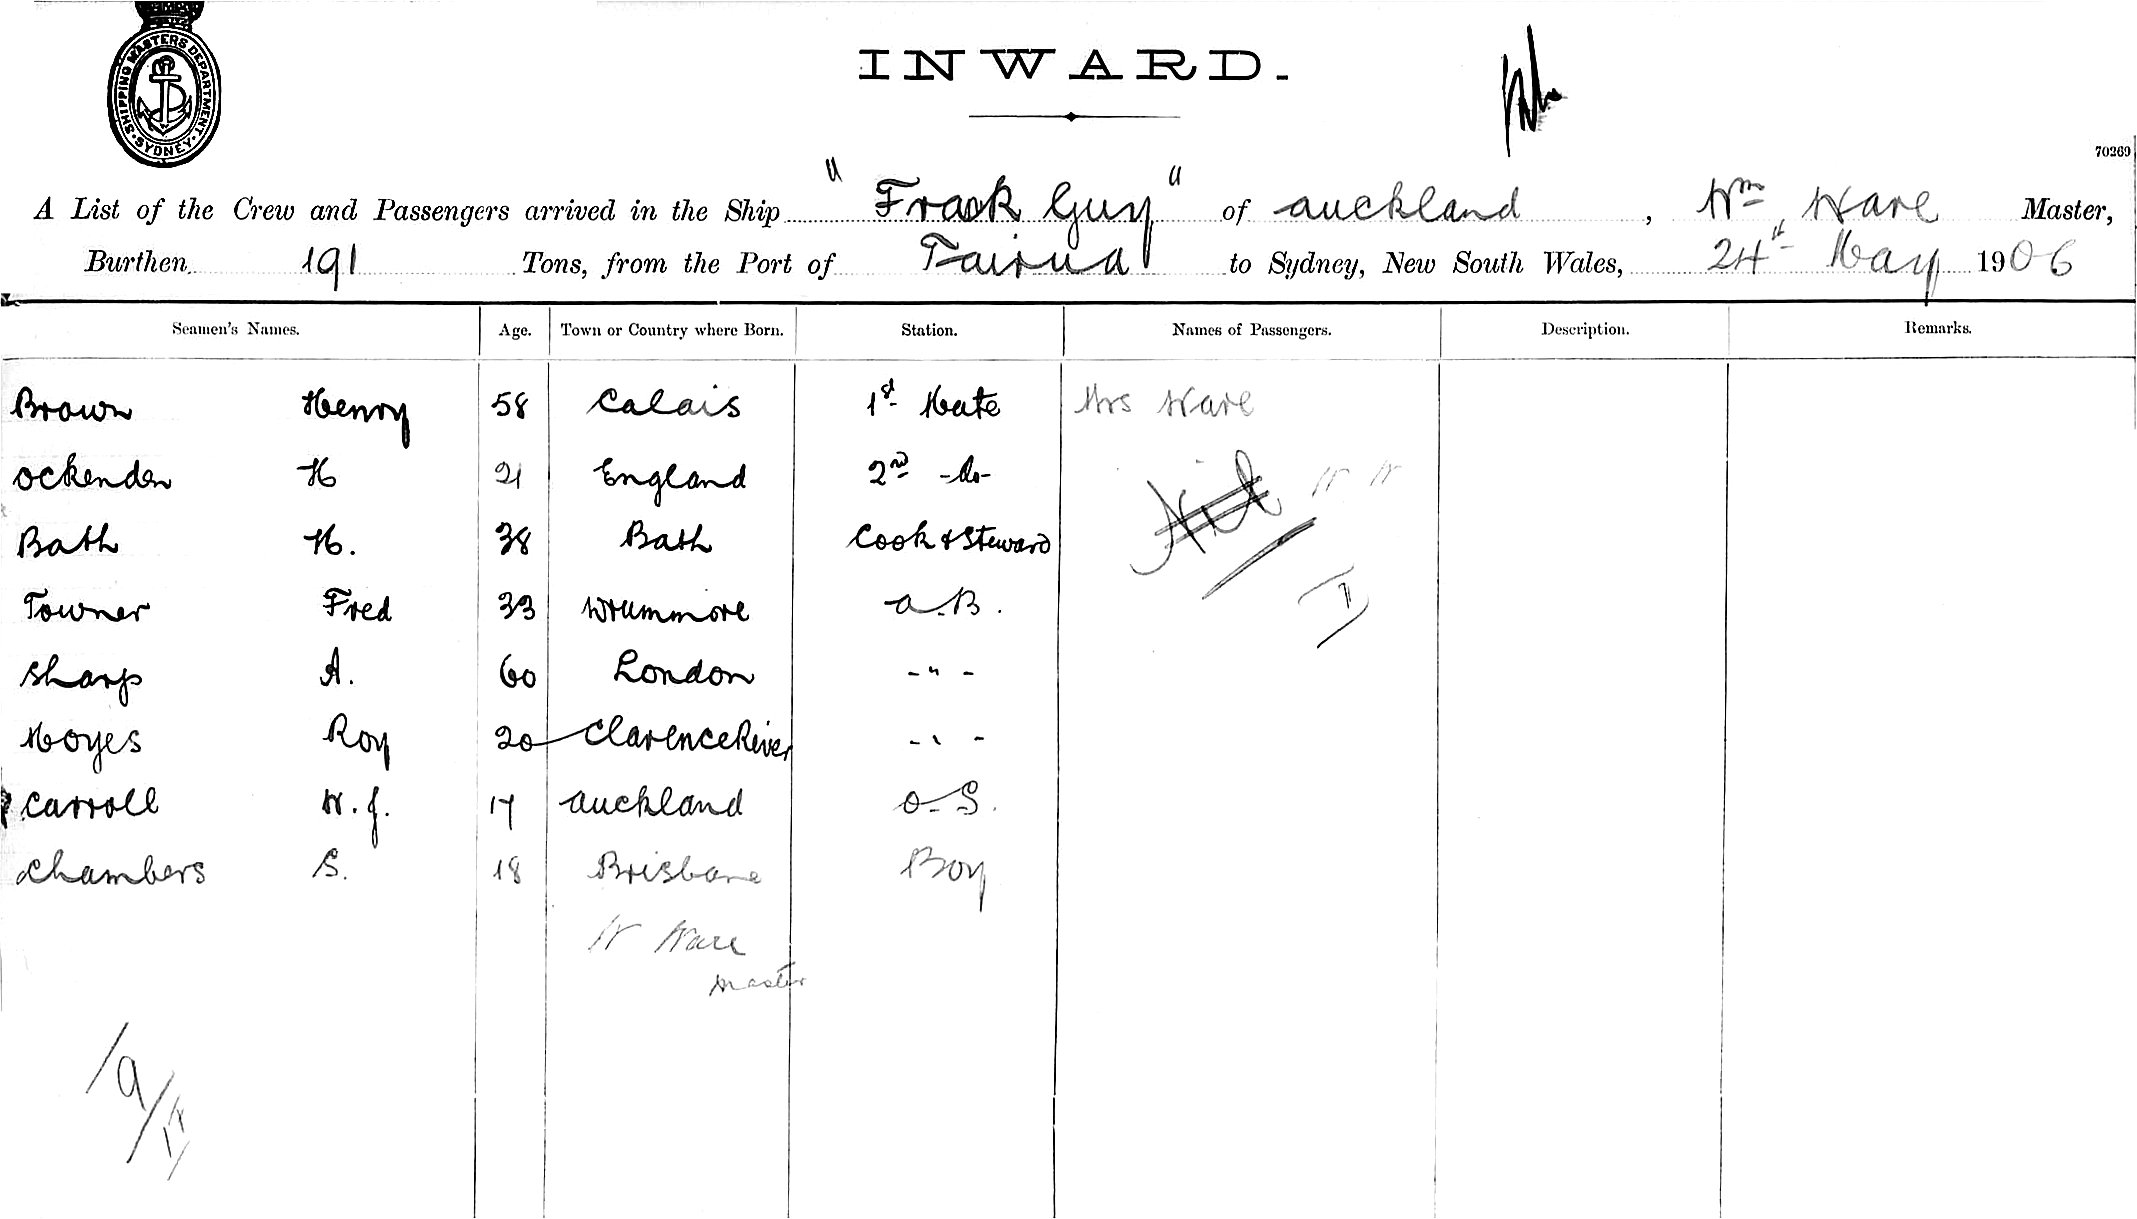 SHIPPING MASTERS DEPARTMENT. SYDNEY.
INWARD.
70269
A List of the Crew and Passengers arrived in the Ship "Frank Guy" of Auckland, Wm Ware Master,
Burthen 191 Tons, from the Port of Tairua to Sydney, New South Wales, 24th May 1906
Seamen's Names. Age. Town or Country where Born. Station. Names of Passengers. Description. Remarks.
Brown Henry 58 Calais 1st Mate Mrs Ware
Ockenden H 21 England 2nd -do- Nil W W
Bath H. 38 Bath Cook & Steward
Towner Fred 33 A.B. I
Sharp A. 60 London - " -
Hoyes Roy 20 Clarence River - " -
Carroll W. J. 17 Auckland O.S.
Chambers S. 18 Brisbane Boy
W Ware
Master
9